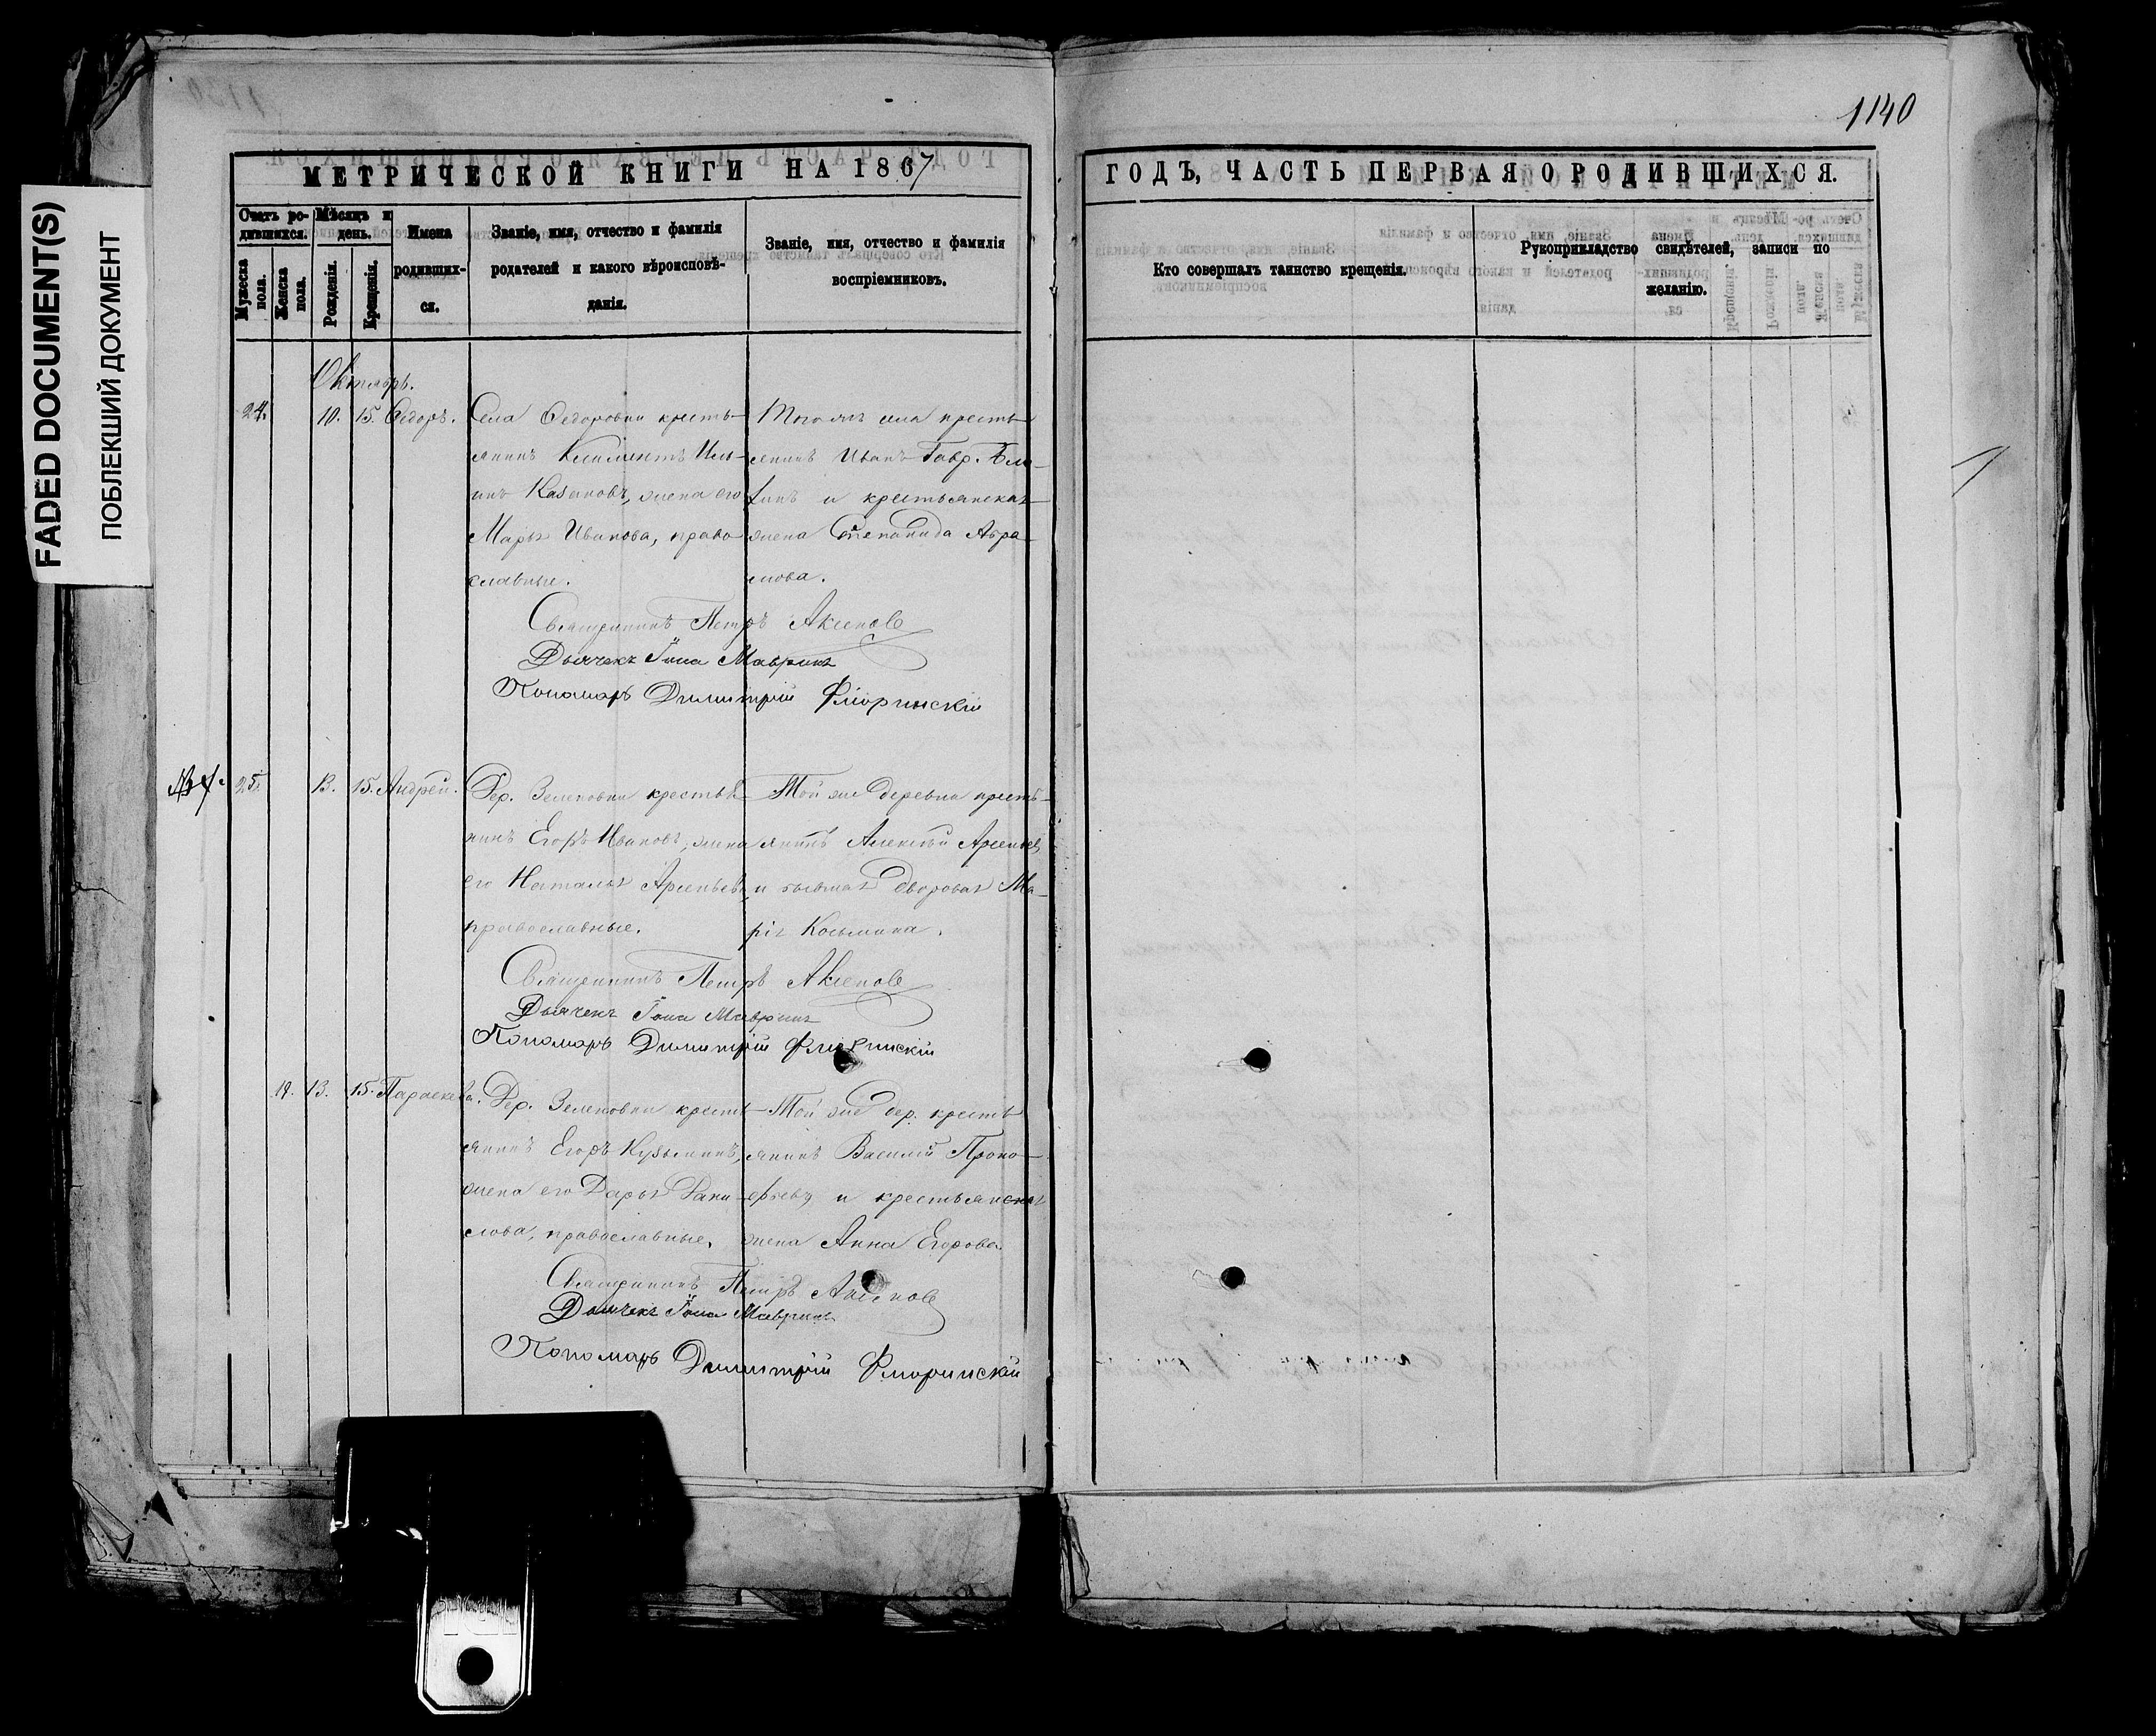 FADED DOCUMENT(S)
ПОБЛЕКШИЙ ДОКУМЕНТ
1140
МЕТРИЧЕСКОЙ КНИГИ НА 1867
ГОДЪ, ЧАСТЬ ПЕРВАЯ О РОДИВШИХСЯ.
Счетъ ро-
дившихся.
Мужеска
пола.
Женска
пола.
Мѣсяцъ и
день.
Рожденія.
Крещенія.
Имена
родивших-
ся.
Званіе, имя, отчество и фамилія
родителей и какого вѣроисповѣ-
данія.
Званіе, имя, отчество и фамилія
воспріемниковъ.
Кто совершалъ таинство крещенія.
Рукоприкладство свидѣтелей, записи по
желанію.
Октябрь.
24. 10. 15. Ѳедоръ.
Села Ѳедоровки кресть-
янинъ Климентъ Иль-
инъ Казаковъ, жена его
Марья Иванова, право
славные.
Того же села кресть
янинъ Иванъ Гавр.
и крестьянская
жена Степанида Абра-
мова.
Священникъ Петръ Аксеновъ
Дьячекъ Іона Мавринъ
Пономарь Димитрій Флоринскій
25. 13. 15. Андрей.
Дер. Зеленовки крестья
нинъ Егоръ Ивановъ, жена
его Наталья Арсеньева
православные.
Той же деревни кресть-
янинъ Алексѣй Арсеньевъ
и бывшая дворовая Ма-
рія Косьмина.
Священникъ Петръ Аксеновъ
Дьячекъ Іона Мавринъ
Пономарь Димитрій Флоринскій
19. 13. 15. Параскева.
Дер. Зеленовки кресть
янинъ Егоръ Кузьминъ,
жена его Дарья Дани-
лова, православные.
Той же дер. кресть
янинъ Василій Проко-
фьевъ и крестьянская
жена Анна Егорова.
Священникъ Петръ Аксеновъ
Дьячекъ Іона Мавринъ
Пономарь Димитрій Флоринскій